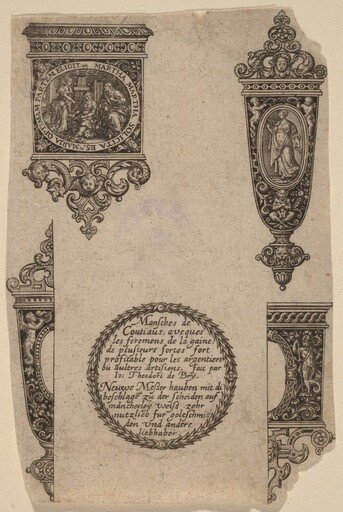 MARTHA MARTHA SOLICITA ES
MARIA
Mansches de
Coutiaus, aveques
les feremens de la gaine,
de plusieurs sortes fort
profitable pour les argentiers
ou aultres artisiens, fait par
Io: Theodori de Bry.
Neuwe Messer hauben mit di
beschlage zů der scheiden auf
mancherley weiß zehr
nutzlich fur goltschmi
den vnd andere
liebhaber